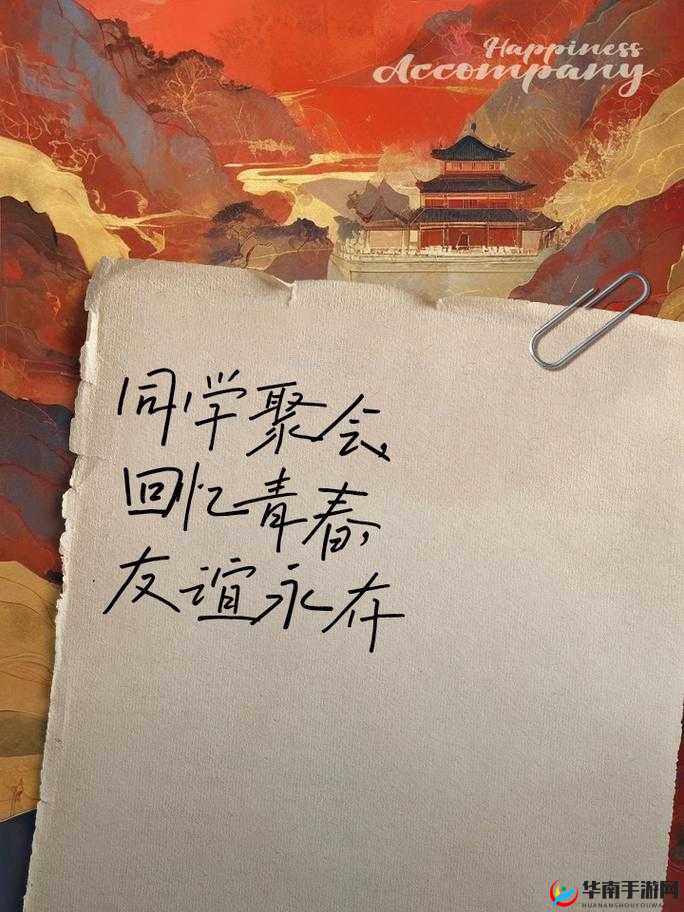 Happiness
Accompany
同学聚会、
回忆青春，
友谊永存
华南手游网
HUANANSHOUYOUWANG